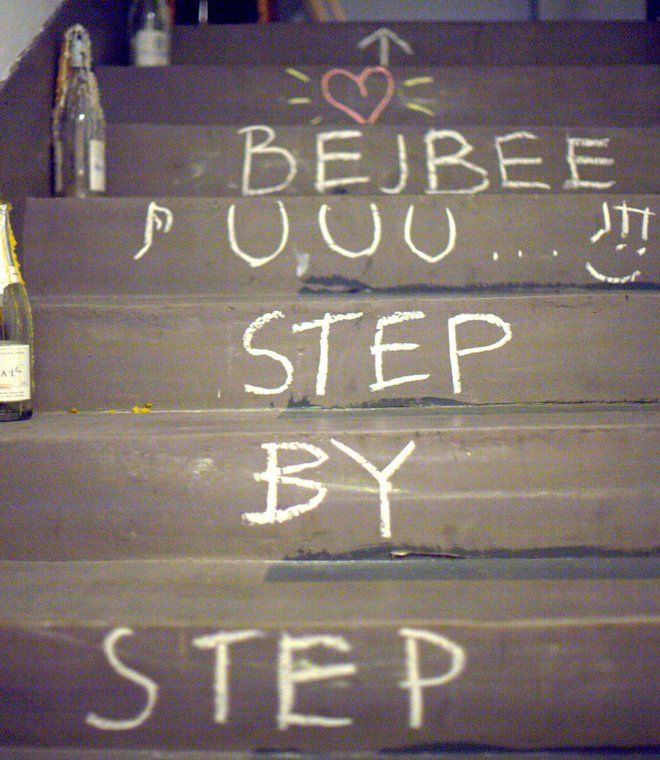 BEJBEE
UUU....
STEP
BY
STEP